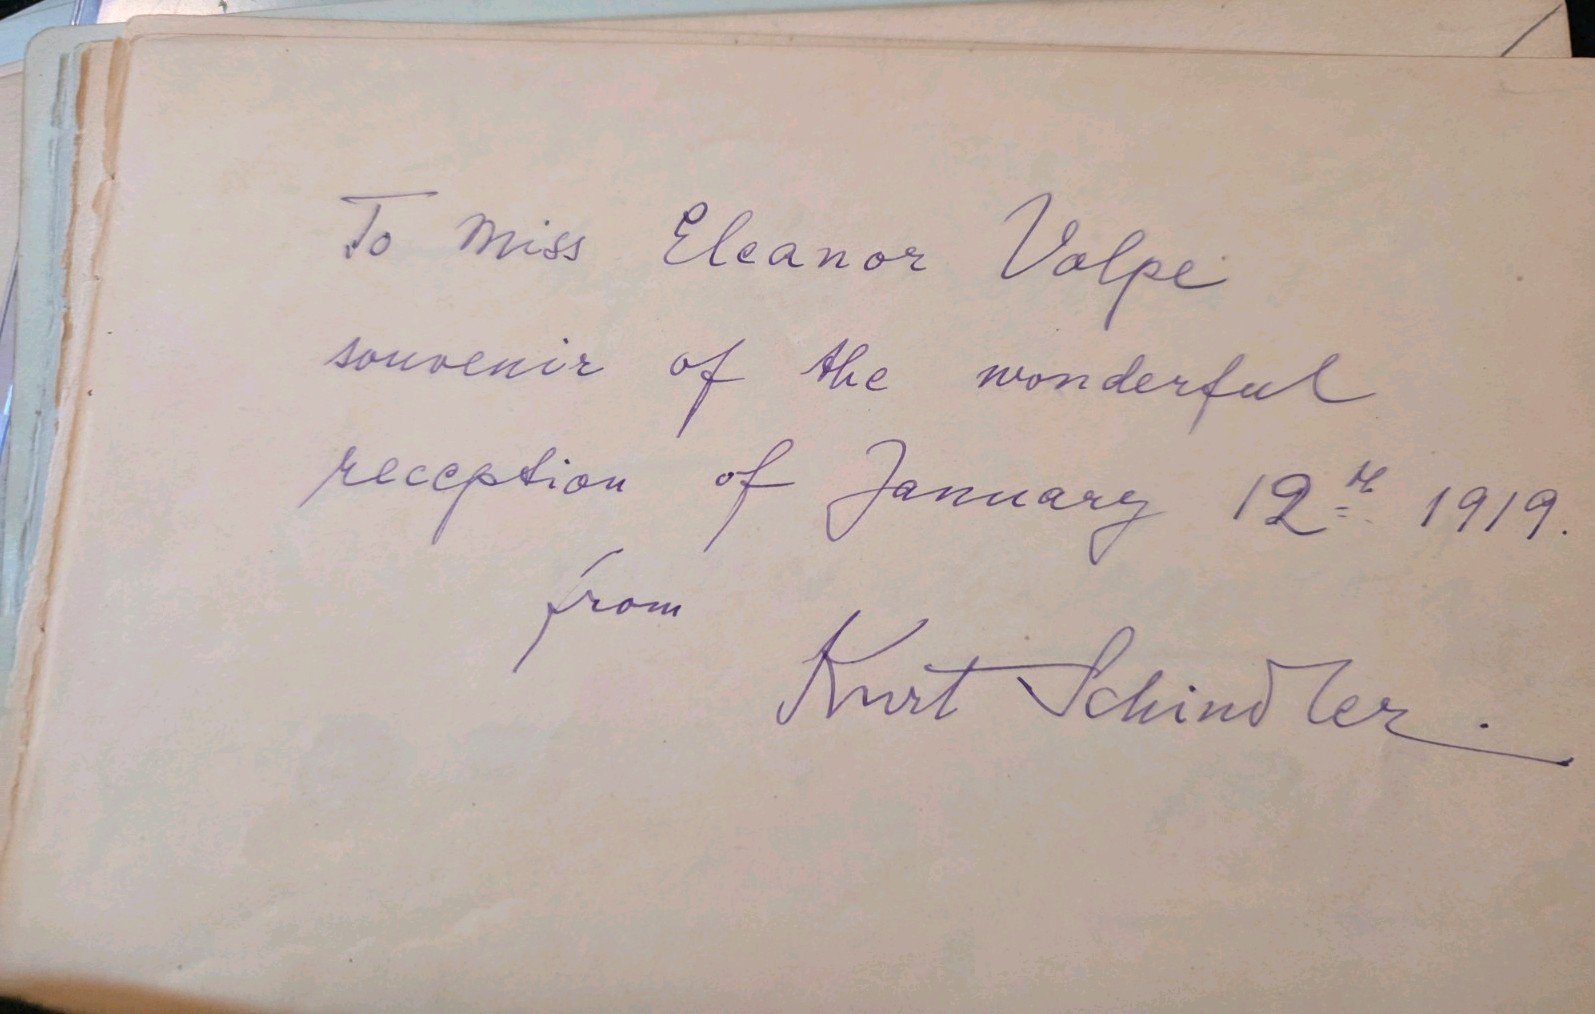 To Miss Eleanor Volpe
souvenir of the wonderful
reception of January 12th 1919.
from
Kurt Schindler.